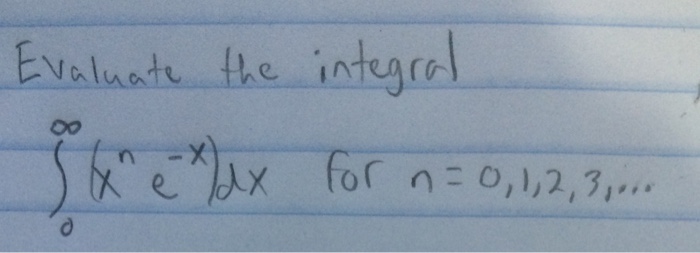 Evaluate the integral
∫₀^∞ (xⁿ e⁻ˣ)dx for n = 0,1,2,3,...